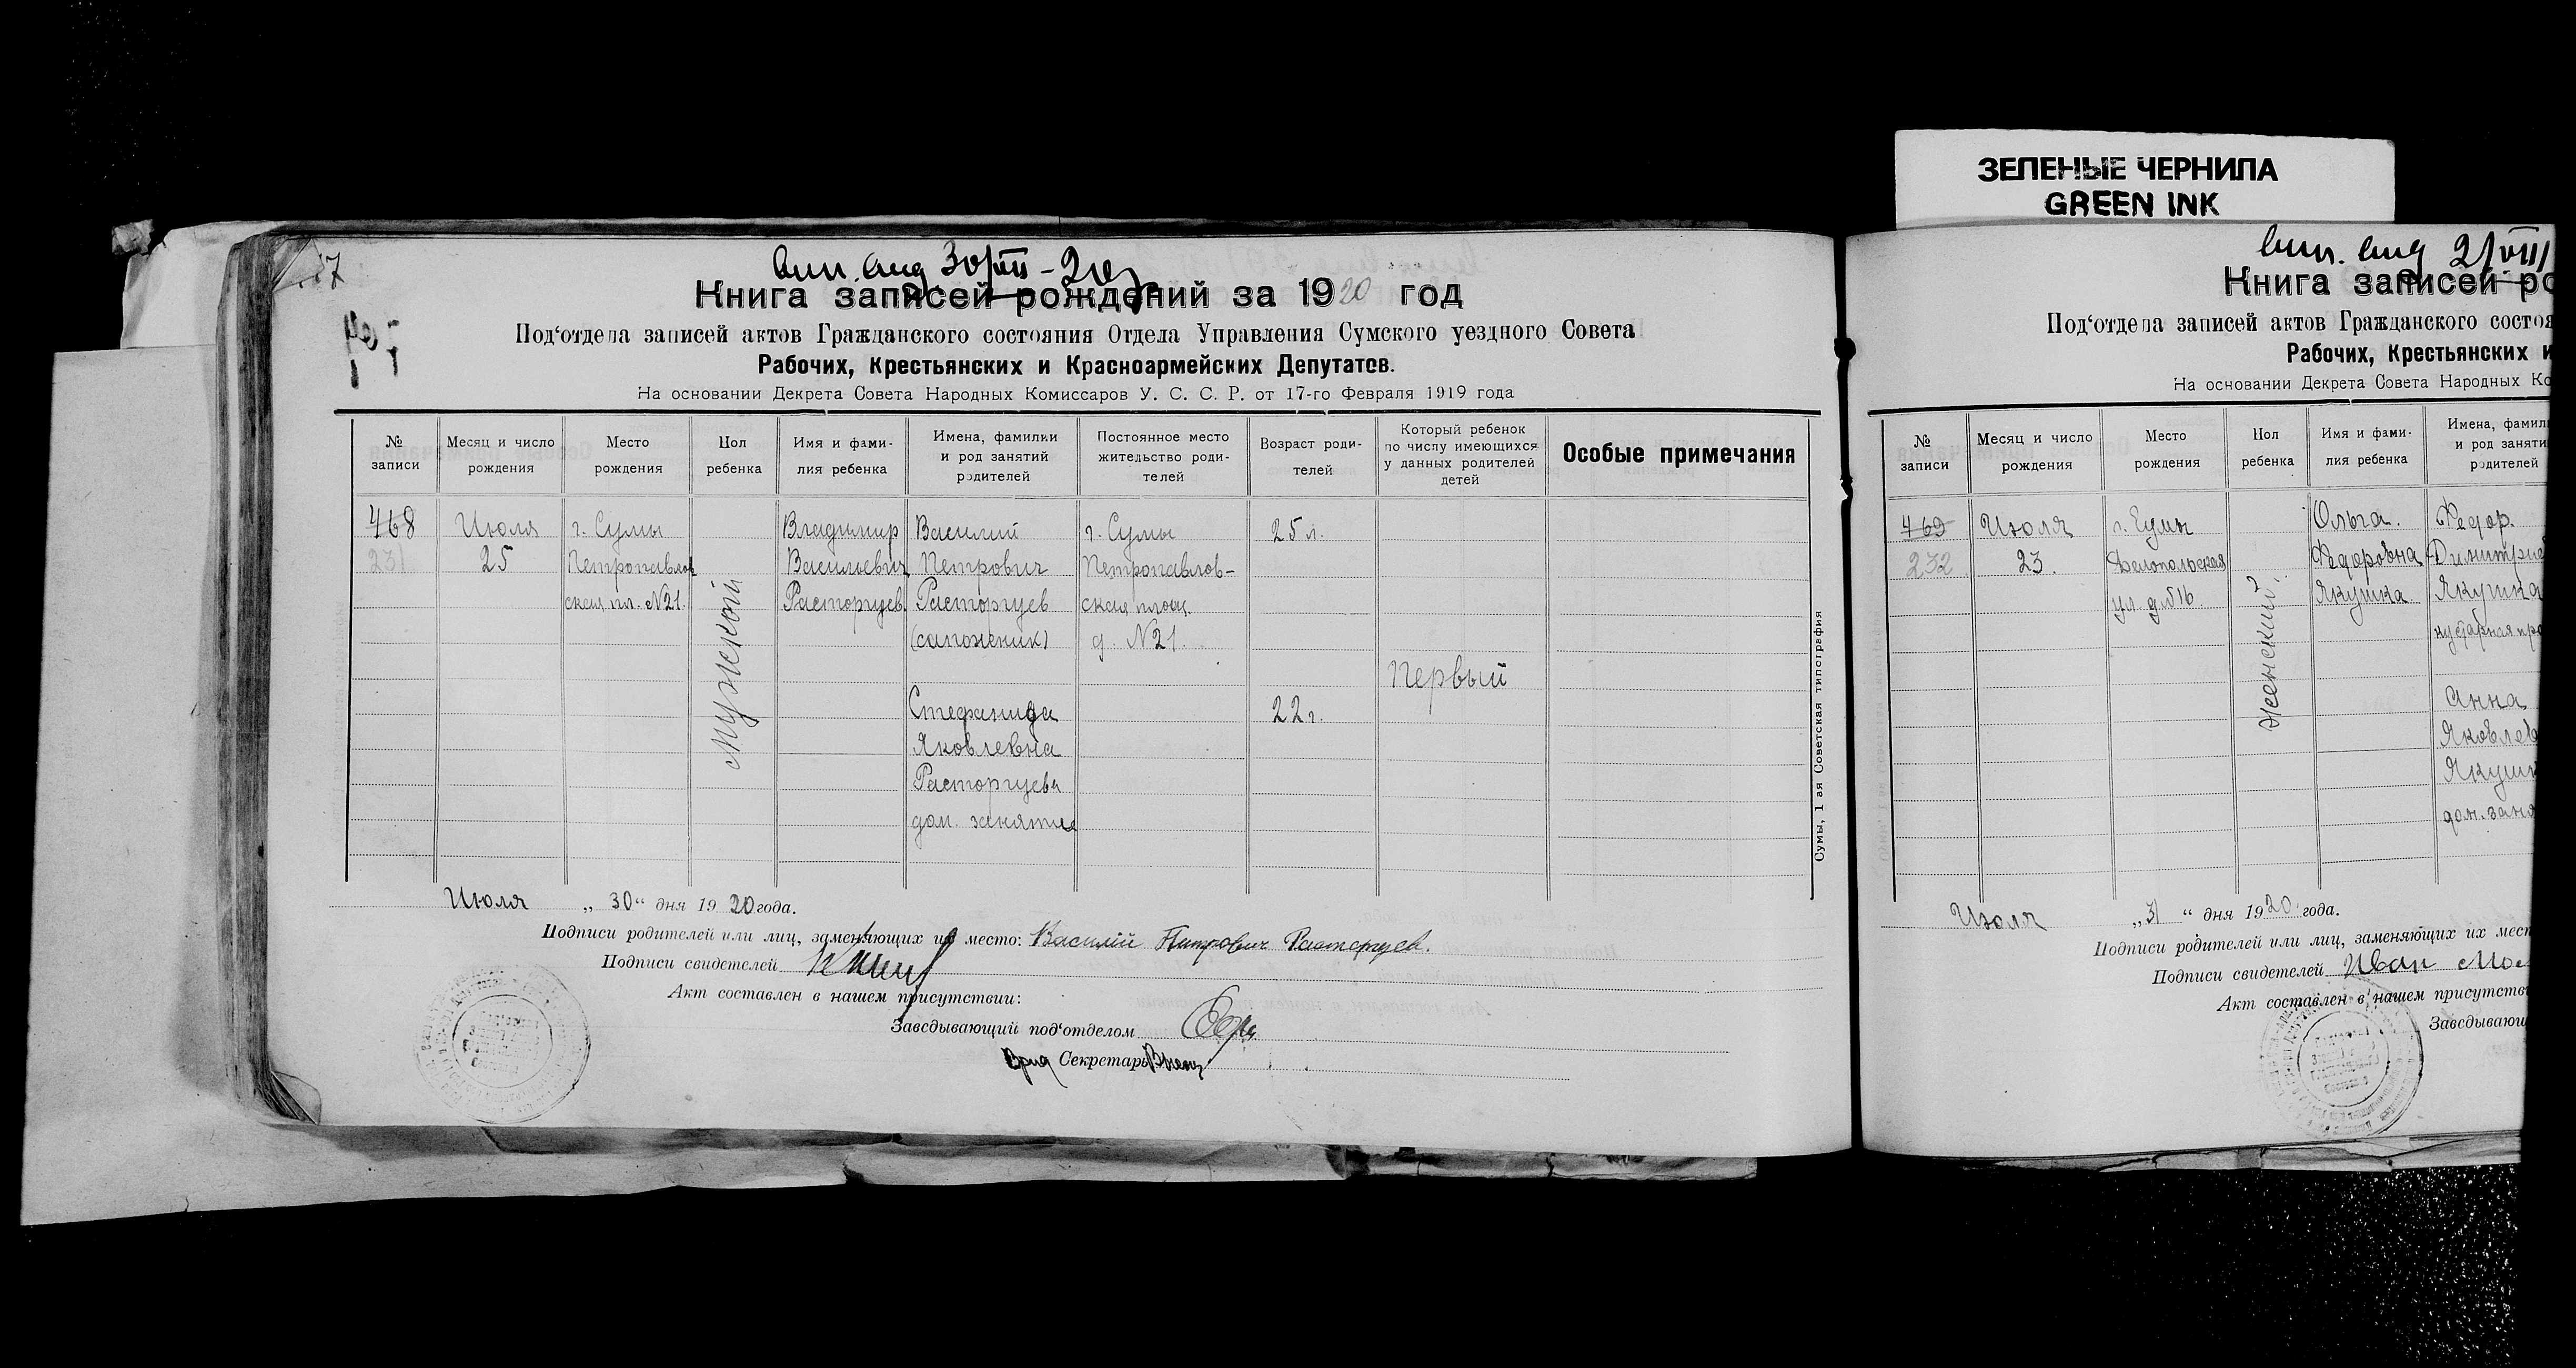 ЗЕЛЕНЫЕ ЧЕРНИЛА
GREEN INK
Книга записей рождений за 1920 год
Под‘отдела записей актов Гражданского состояния Отдела Управления Сумского уездного Совета
Рабочих, Крестьянских и Красноармейских Депутатов.
На основании Декрета Совета Народных Комиссаров У. С. С. Р. от 17-го Февраля 1919 года
№ записи
Месяц и число рождения
Место рождения
Пол ребенка
Имя и фамилия ребенка
Имена, фамилии и род занятий родителей
Постоянное место жительство родителей
Возраст родителей
Который ребенок по числу имеющихся у данных родителей детей
Особые примечания
468
231
Июля
25
г. Сумы
Петропавлов
ская пл. №21.
мужской
Владимир
Васильевич
Расторгуев.
Василий
Петрович
Расторгуев
(сапожник)
Стефанида
Яковлевна
Расторгуева
дом. занятия
г. Сумы
Петропавлов-
ская площ.
д. №21.
25 л.
22 г.
Первый
Сумы, 1 ая Советская типография
Июля „ 30 “ дня 1920 года.
Подписи родителей или лиц, заменяющих их место: Василій Петрович Расторгуев.
Подписи свидетелей
Акт составлен в нашем присутствии:
Заведывающий под‘отделом
Врид Секретарь
Книга записей ро
Под‘отдела записей актов Гражданского состоя
Рабочих, Крестьянских и
На основании Декрета Совета Народных Ко
№ записи
Месяц и число рождения
Место рождения
Пол ребенка
Имя и фамилия ребенка
Имена, фамил
и род заняти
родителей
469
232
Июля
23.
г. Сумы
Белопольская
ул. д. №16.
женский.
Ольга.
Федоровна
Якушка.
Федор.
Димитрие
Якушка
кустарная про
Анна
Яковлев
Якушк
дом. заня
Июля „ 31 “ дня 1920 года.
Подписи родителей или лиц, заменяющих их мест
Подписи свидетелей Иван
Акт составлен в нашем присутстви
Заведывающ